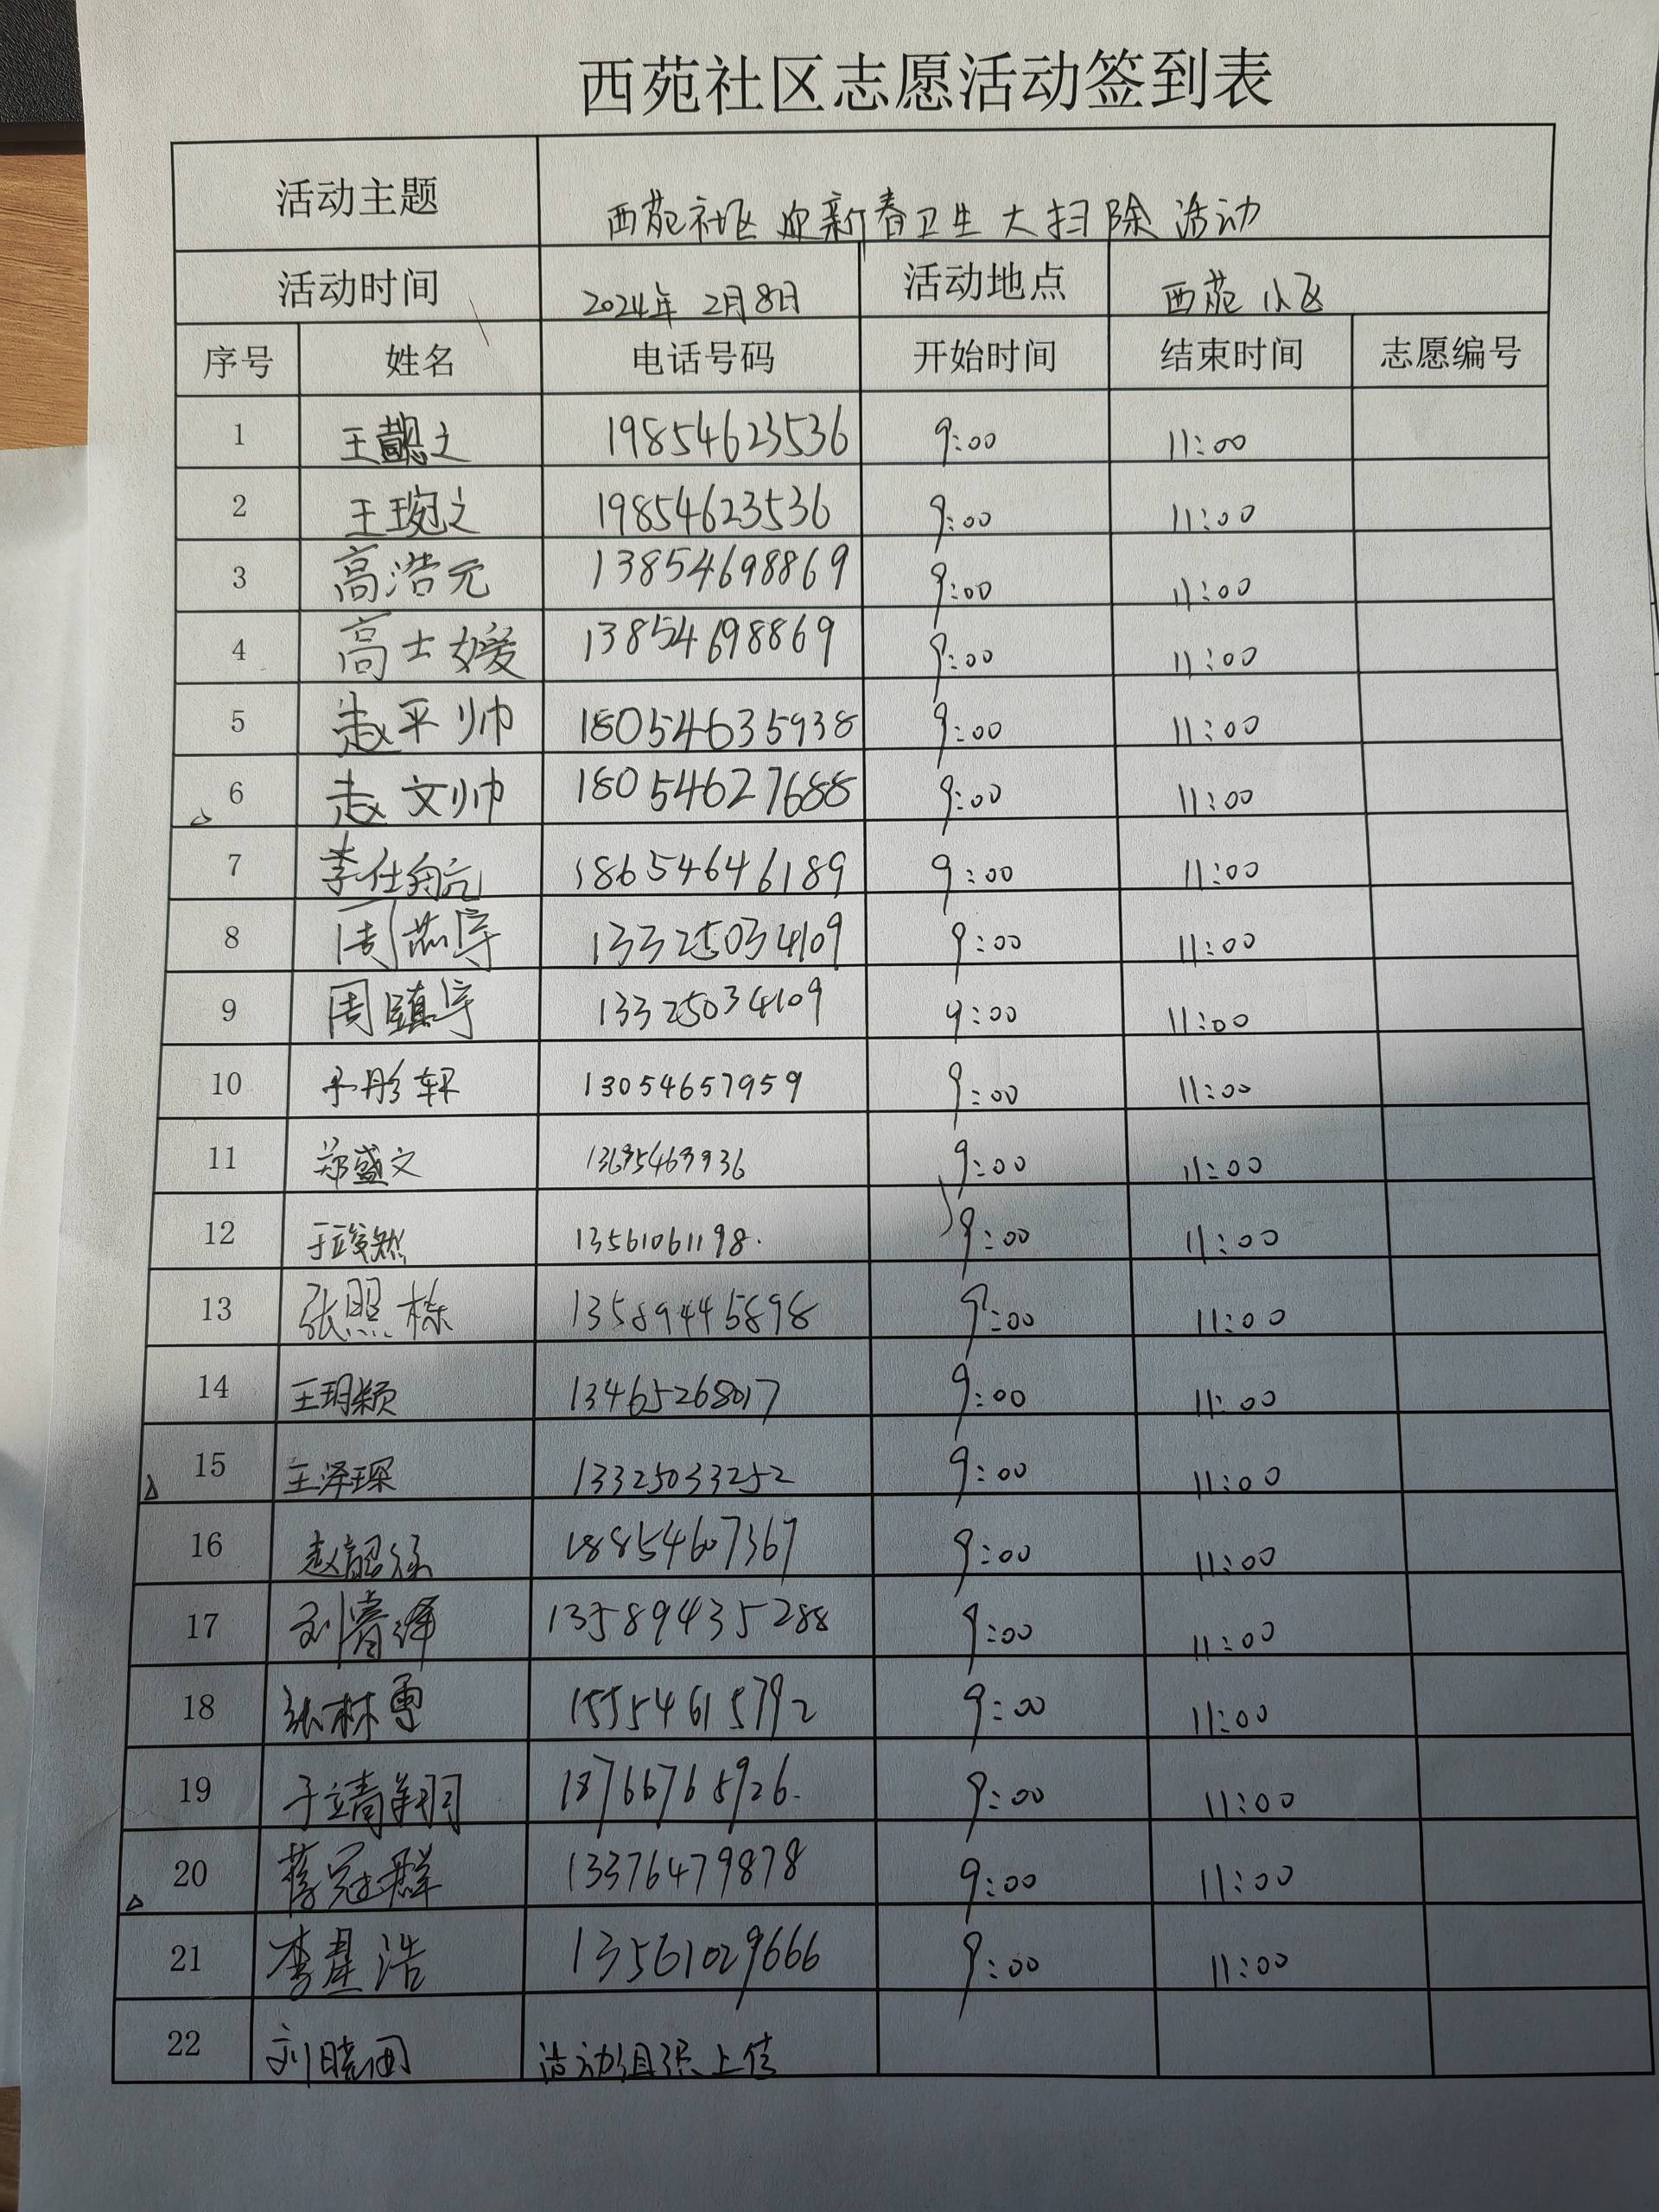 西苑社区志愿活动签到表
活动主题 西苑社区迎新春卫生大扫除活动
活动时间 2024年2月8日 活动地点 西苑小区
序号 姓名 电话号码 开始时间 结束时间 志愿编号
1 王懿之 19854623536 9:00 11:00
2 王琬之 19854623536 9:00 11:00
3 高浩元 13854698869 9:00 11:00
4 高士媛 13854698869 9:00 11:00
5 赵平帅 18054635938 9:00 11:00
6 赵文帅 18054627688 9:00 11:00
7 李仕航 18654646189 9:00 11:00
8 周芯宇 13325034109 9:00 11:00
9 周镇宇 13325034109 9:00 11:00
10 彤轩 13054657959 9:00 11:00
11 郑盛文 9:00 11:00
12 于竣然 13561061198. 9:00 11:00
13 张照栋 13589445898 9:00 11:00
14 王玥颖 13465268017 9:00 11:00
15 王泽琛 13325033252 9:00 11:00
16 赵韶 18854607367 9:00 11:00
17 刘睿泽 13589435288 9:00 11:00
18 张林 15554615792 9:00 11:00
19 于靖翔 18766765926. 9:00 11:00
20 蒋冠群 13376479878 9:00 11:00
21 李星浩 13561029666 9:00 11:00
22 刘晓 活动组织上传